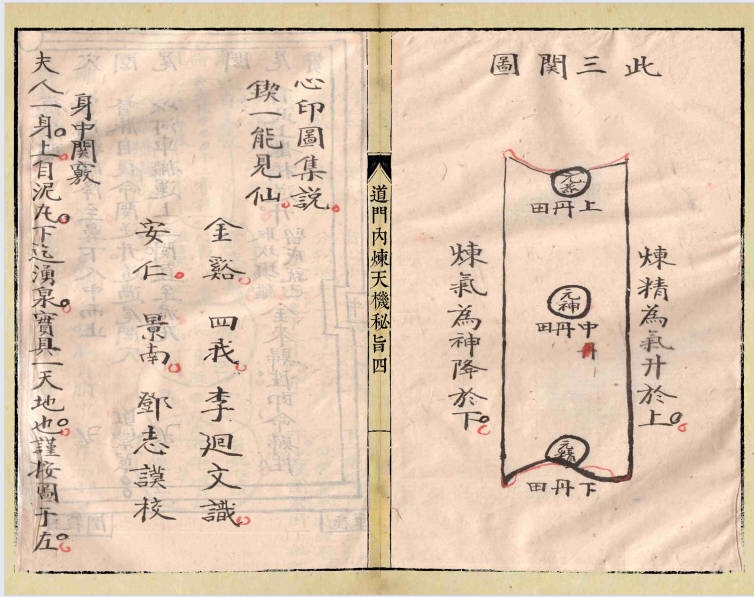 此三関圖
煉精為氣升於上。
元炁
上丹田
元神
中丹田
元精
下丹田
煉氣為神降於下。
道門內煉天機秘旨四
心印圖集説。
鍥一能見仙。
金谿。四我。李廻文識。
安仁。景南。鄧志謨校
身中関竅
夫人一身。上自泥丸。下迄湧泉。實具一天地也。謹按圖于左。